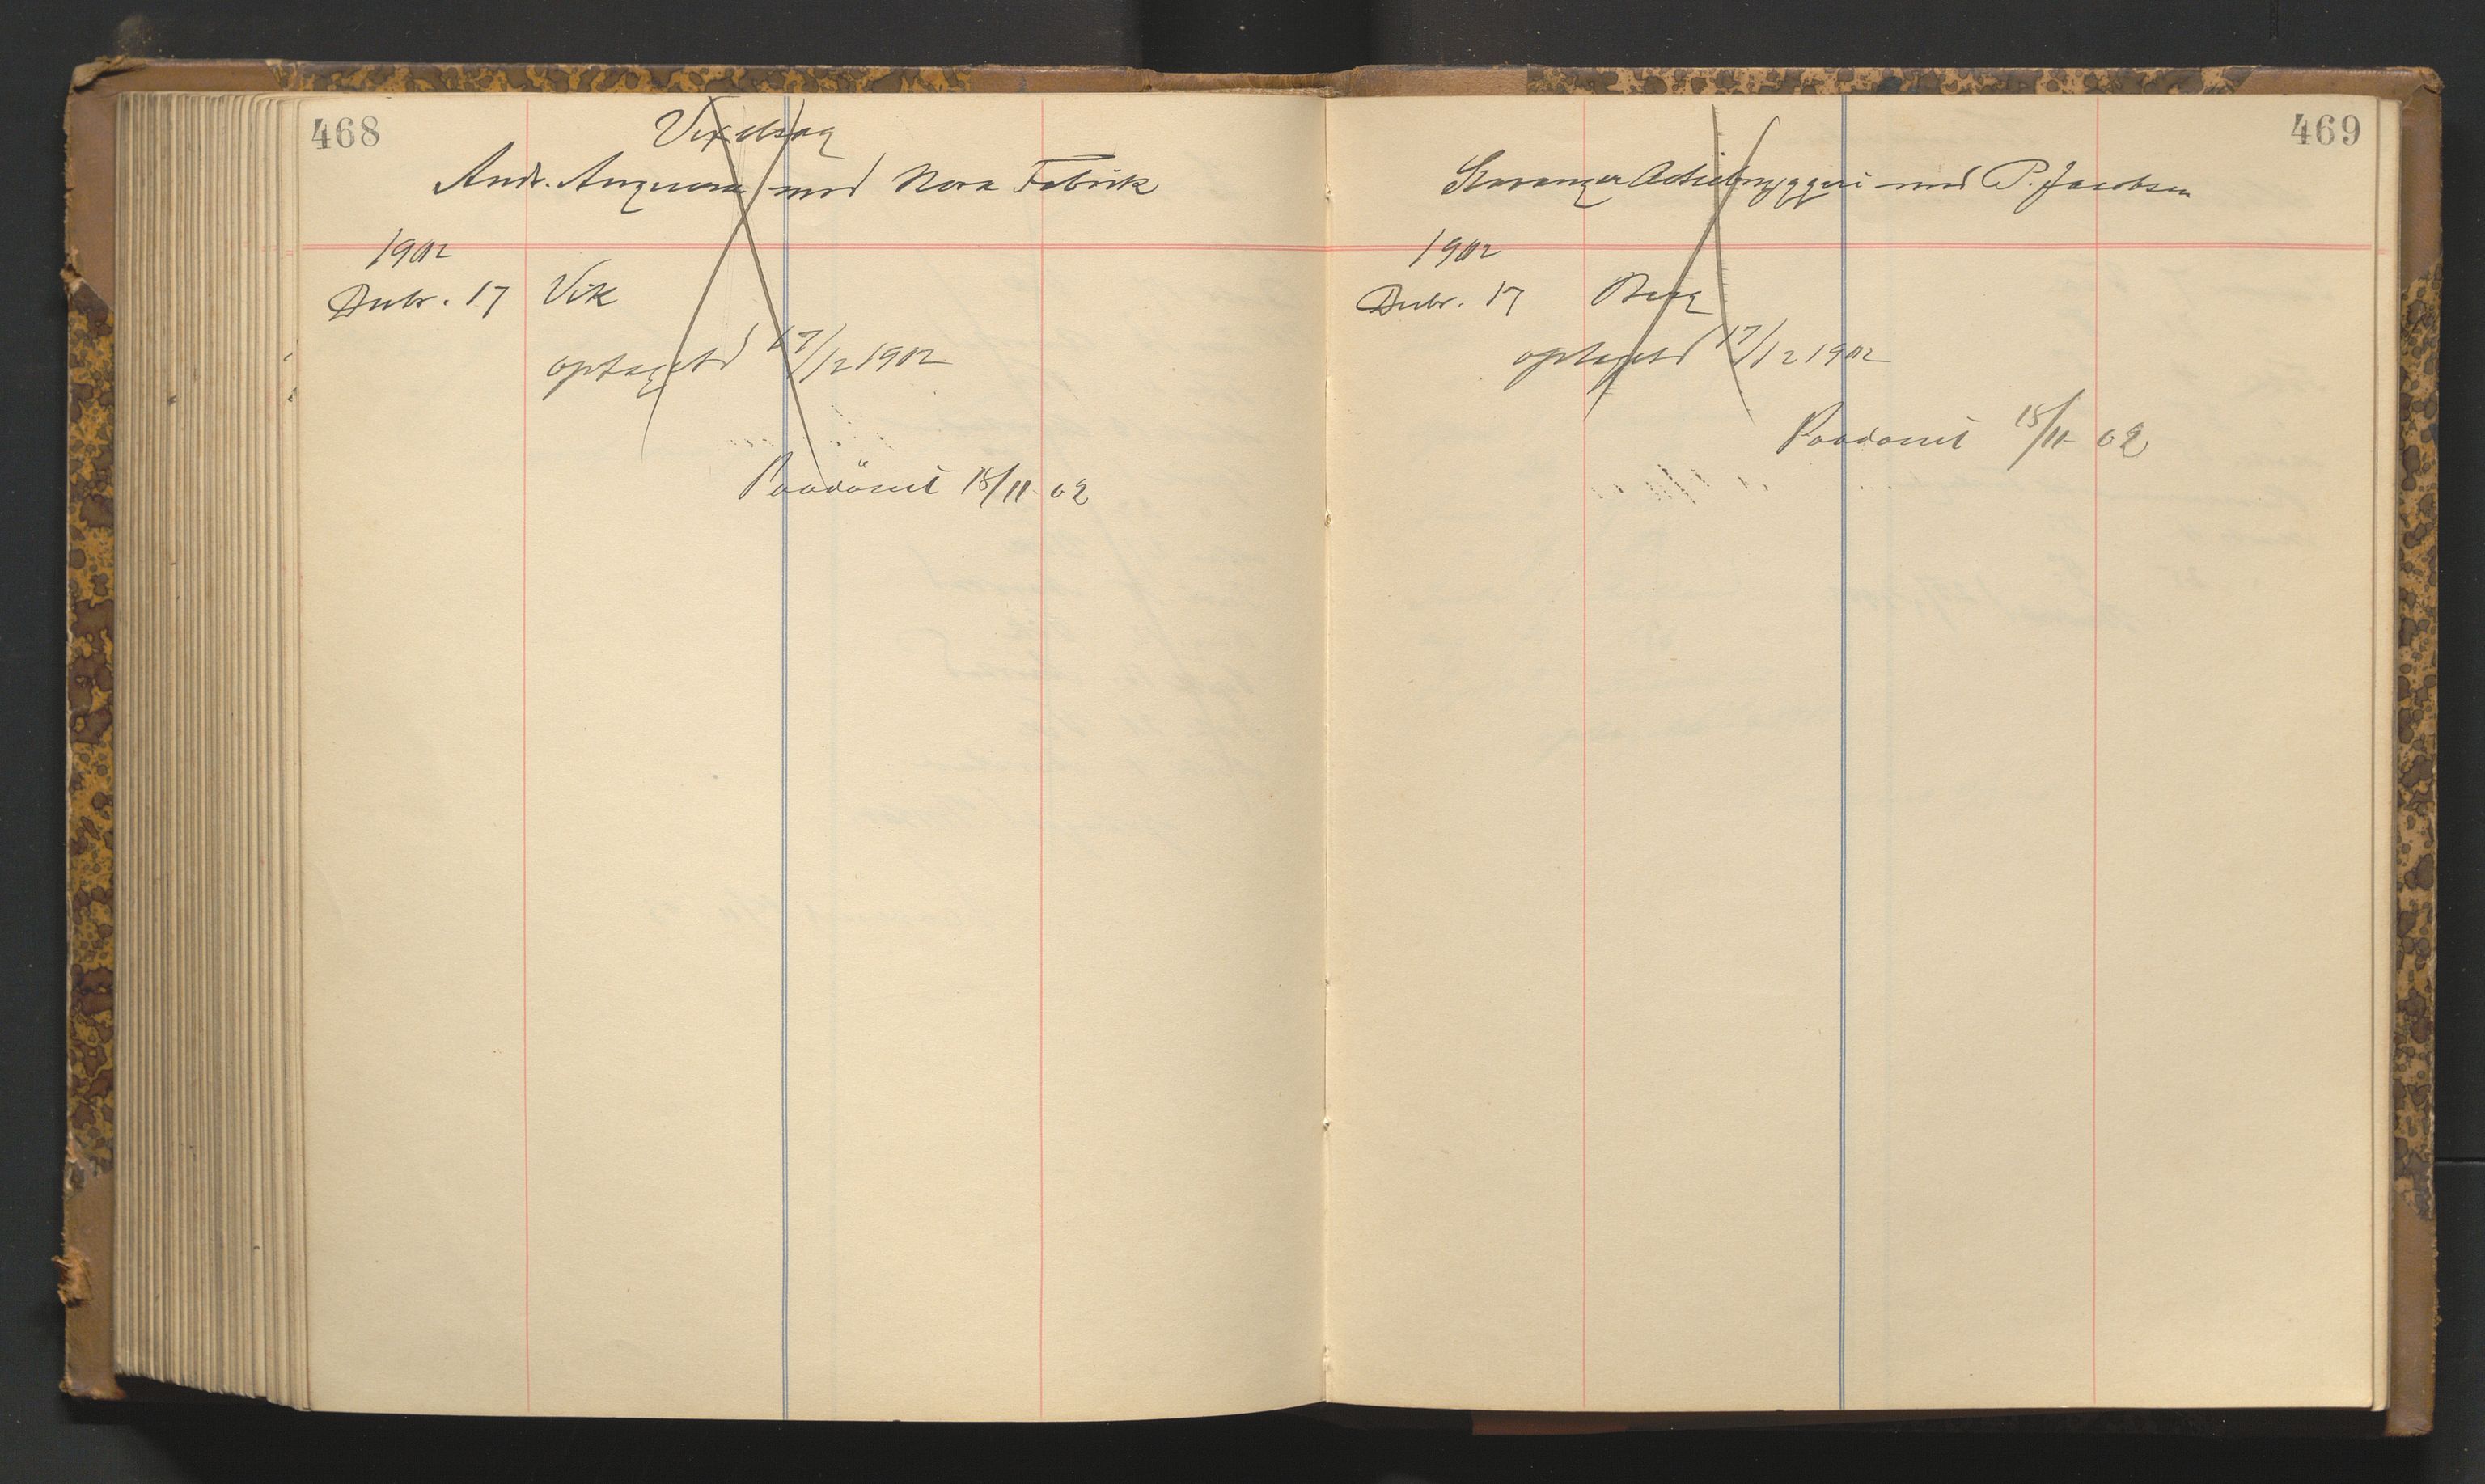 468
Vexelsag
Andr. Anqvera mod Nora Fabrik
1902
Decbr. 17 Vik
optaget d 17/12 1902
Paadömt 18/11 02
469
Stavanger Actiebryggeri mod P. Jacobsen
1902
Decbr. 17 Berg
optaget d 17/12 1902
Paadömt 18/11 02